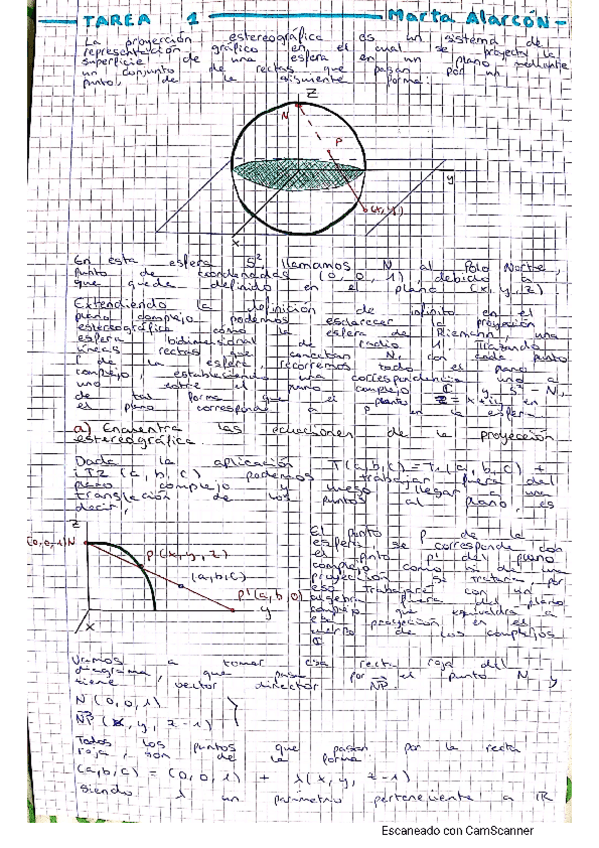 TAREA 1 Marta Alarcón
La proyección estereográfica es un sistema de
representación gráfico en el cual se proyecta la
superficie de una esfera en un plano mediante
un conjunto de rectas que pasan por un
punto, de la siguiente forma:
Z
N
P
y
x
En esta esfera S², llamamos N al Polo Norte,
punto de coordenadas (0, 0, 1), debido a
que queda definido en el plano (x, y, z)
Extendiendo la definición de infinito en el
plano complejo, podemos esclarecer la proyección
estereográfica como la esfera de Riemann, una
esfera bidimensional de radio 1. Trazando
líneas rectas que conectan N, con cada punto
P de la esfera, recorremos todo el plano
complejo, estableciendo una correspondencia uno a
uno entre el plano complejo ℂ y S² - N,
de tal forma que el punto z = x + iy en
el plano corresponde a P en la esfera.
a) Encuentra las ecuaciones de la proyección
estereográfica.
Dada la aplicación T(a, b, c) = T₁(a, b, c) +
iT2(a, b, c) podemos trabajar fuera del
plano complejo y luego llegar a una
translación de los puntos al plano, es
decir,
z
(0,0,1)N
P(x, y, z)
(a, b, c)
P'(a, b, 0)
y
x
El punto P de la
esfera se corresponde con
el punto P' del plano
complejo como si de una
proyección se tratara, por
eso trabajaré con un
álgebra fuera del plano
complejo que equivaldrá a
esa proyección en el
cuerpo de los complejos
ℂ
Vamos a tomar esa recta roja del
diagrama, que pasa por el punto N y
tiene vector director NP.
N (0, 0, 1)
NP (x, y, z-1)
Todos los puntos que pasan por la recta
roja, son de la forma:
(a, b, c) = (0, 0, 1) + λ(x, y, z-1)
siendo λ un parámetro perteneciente a ℝ
Escaneado con CamScanner